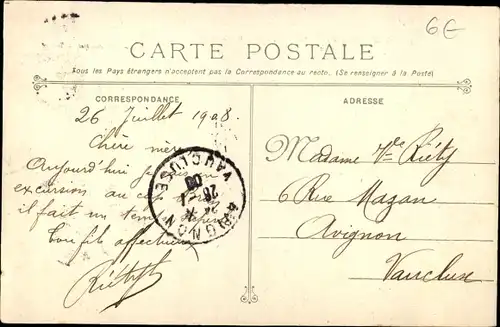 6€
CARTE POSTALE
Tous les Pays étrangers n'acceptent pas la Correspondance au recto. (Se renseigner à la Poste)
CORRESPONDANCE
26 Juillet 1908.
Chère mère
Aujourd'hui
excursion au
il fait un temps
Ton fils affectueux
AVIGNON
VAUCLUSE
ADRESSE
Madame Vve
6 Rue Mazan
Avignon
Vaucluse